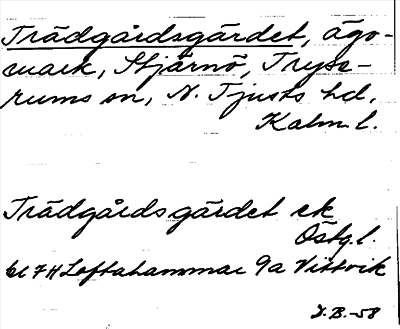 Trädgårdsgärdet, ägo-
mark, Stjärnö, Tryse-
rums sn, N. Tjusts hd,
Kalm. l.
Trädgårdsgärdet ek
Östg. l.
bl 7H Loftahammar 9a Vittvik
J.B.-58